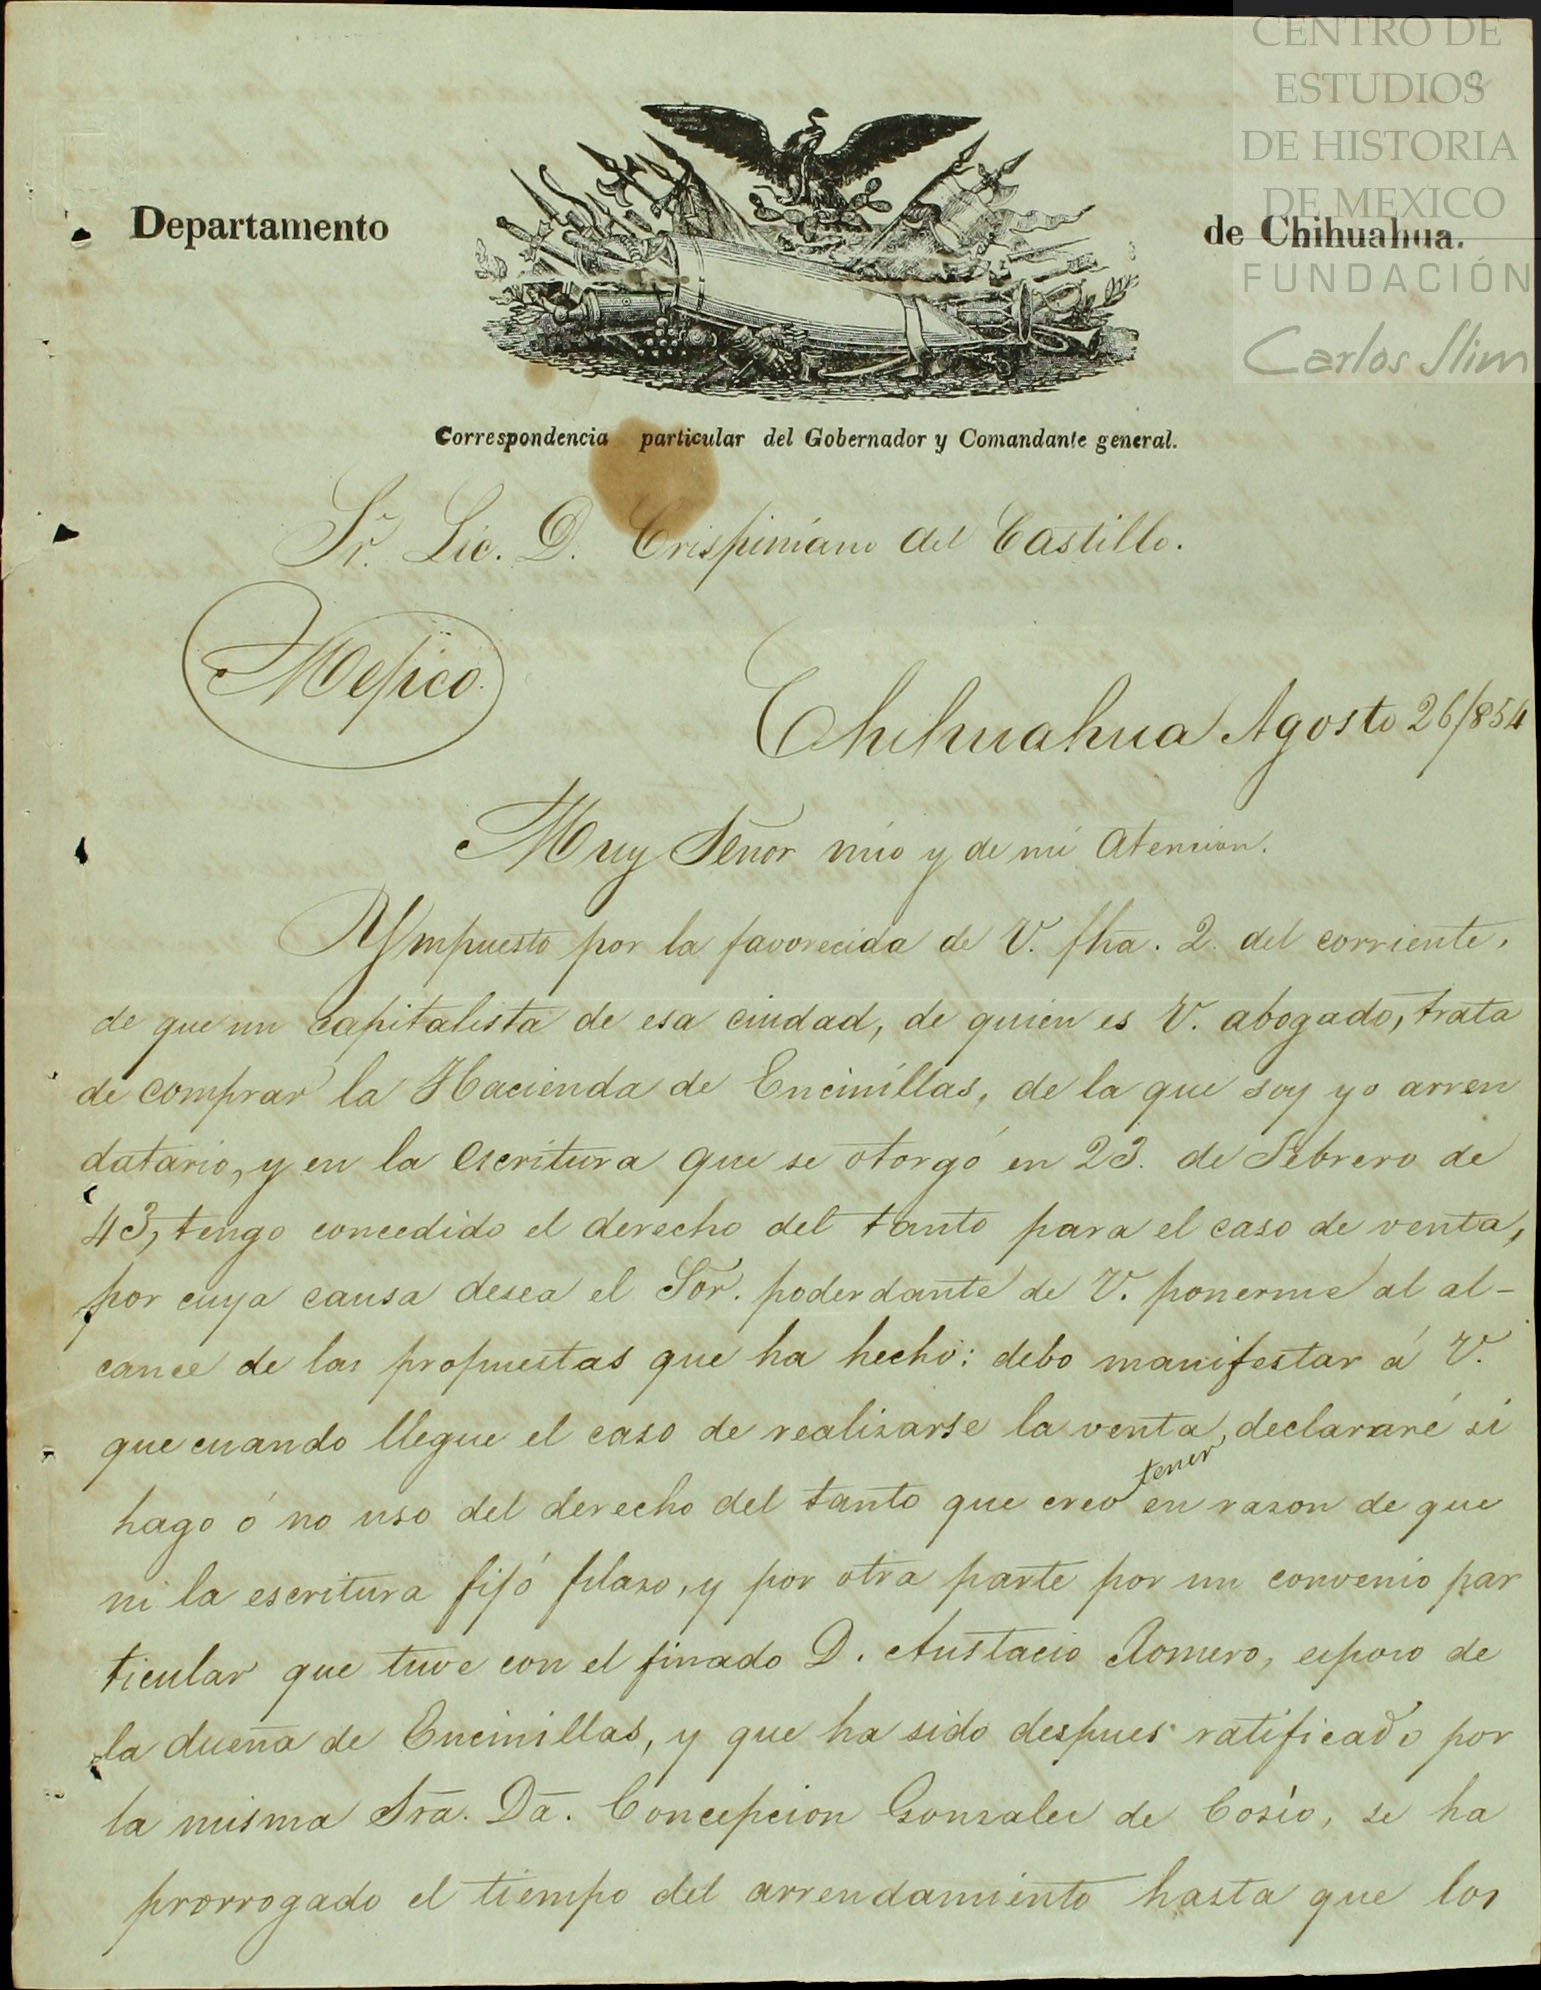 CENTRO DE
ESTUDIOS
DE HISTORIA
DE MEXICO
FUNDACIÓN
Carlos Slim
Departamento de Chihuahua.
Correspondencia particular del Gobernador y Comandante general.
Sr. Lic. D. Crispiniano del Castillo.
Mejico.
Chihuahua Agosto 26/854
Muy Señor mio y de mi atencion.
Ympuesto por la favorecida de V. fha. 2. del corriente,
de que un capitalista de esa ciudad, de quien es V. abogado, trata
de comprar la Hacienda de Encinillas, de la que soy yo arren
datario, y en la escritura que se otorgó en 23. de Febrero de
43, tengo concedido el derecho del tanto para el caso de venta,
por cuya causa desea el Sõr. poderdante de V. ponerme al al-
cance de las propuestas que ha hecho: debo manifestar á V.
que cuando llegue el caso de realizarse la venta, declararé si
hago ó no uso del derecho del tanto que creo tener en razon de que
ni la escritura fijó plazo, y por otra parte por un convenio par
ticular que tuve con el finado D. Austacio Romero, esposo de
la dueña de Encinillas, y que ha sido despues ratificado por
la misma Sra. Da. Concepcion Gonzalez de Cosío, se ha
prorrogado el tiempo del arrendamiento hasta que los